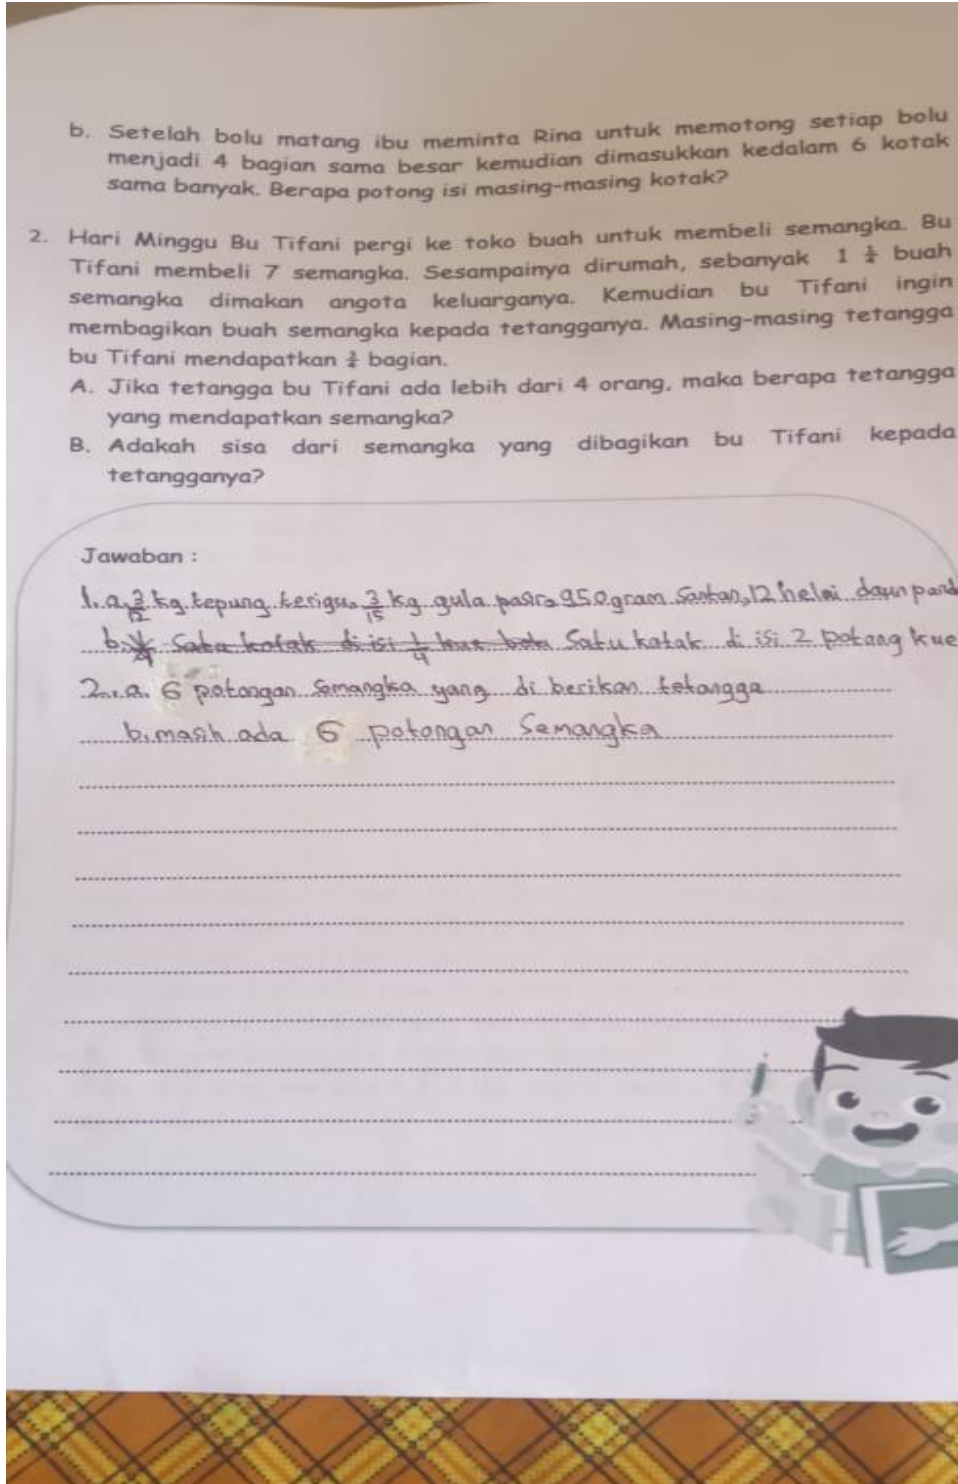 b. Setelah bolu matang ibu meminta Rina untuk memotong setiap bolu
menjadi 4 bagian sama besar kemudian dimasukkan kedalam 6 kotak
sama banyak. Berapa potong isi masing-masing kotak?
2. Hari Minggu Bu Tifani pergi ke toko buah untuk membeli semangka. Bu
Tifani membeli 7 semangka. Sesampainya dirumah, sebanyak 1 buah
semangka dimakan angota keluarganya. Kemudian bu Tifani ingin
membagikan buah semangka kepada tetangganya. Masing-masing tetangga
bu Tifani mendapatkan bagian.
A. Jika tetangga bu Tifani ada lebih dari 4 orang, maka berapa tetangga
yang mendapatkan semangka?
B. Adakah sisa dari semangka yang dibagikan bu Tifani kepada
tetangganya?
Jawaban :
1. a. 3/12 kg tepung terigu, 3/15 kg gula pasir, 950 gram santan, 12 helai daun pand
b. Satu kotak di isi 1/4 kue bolu Satu kotak di isi 2 potong kue
2. a. 6 potongan semangka yang di berikan tetangga
b. masih ada 6 potongan Semangka